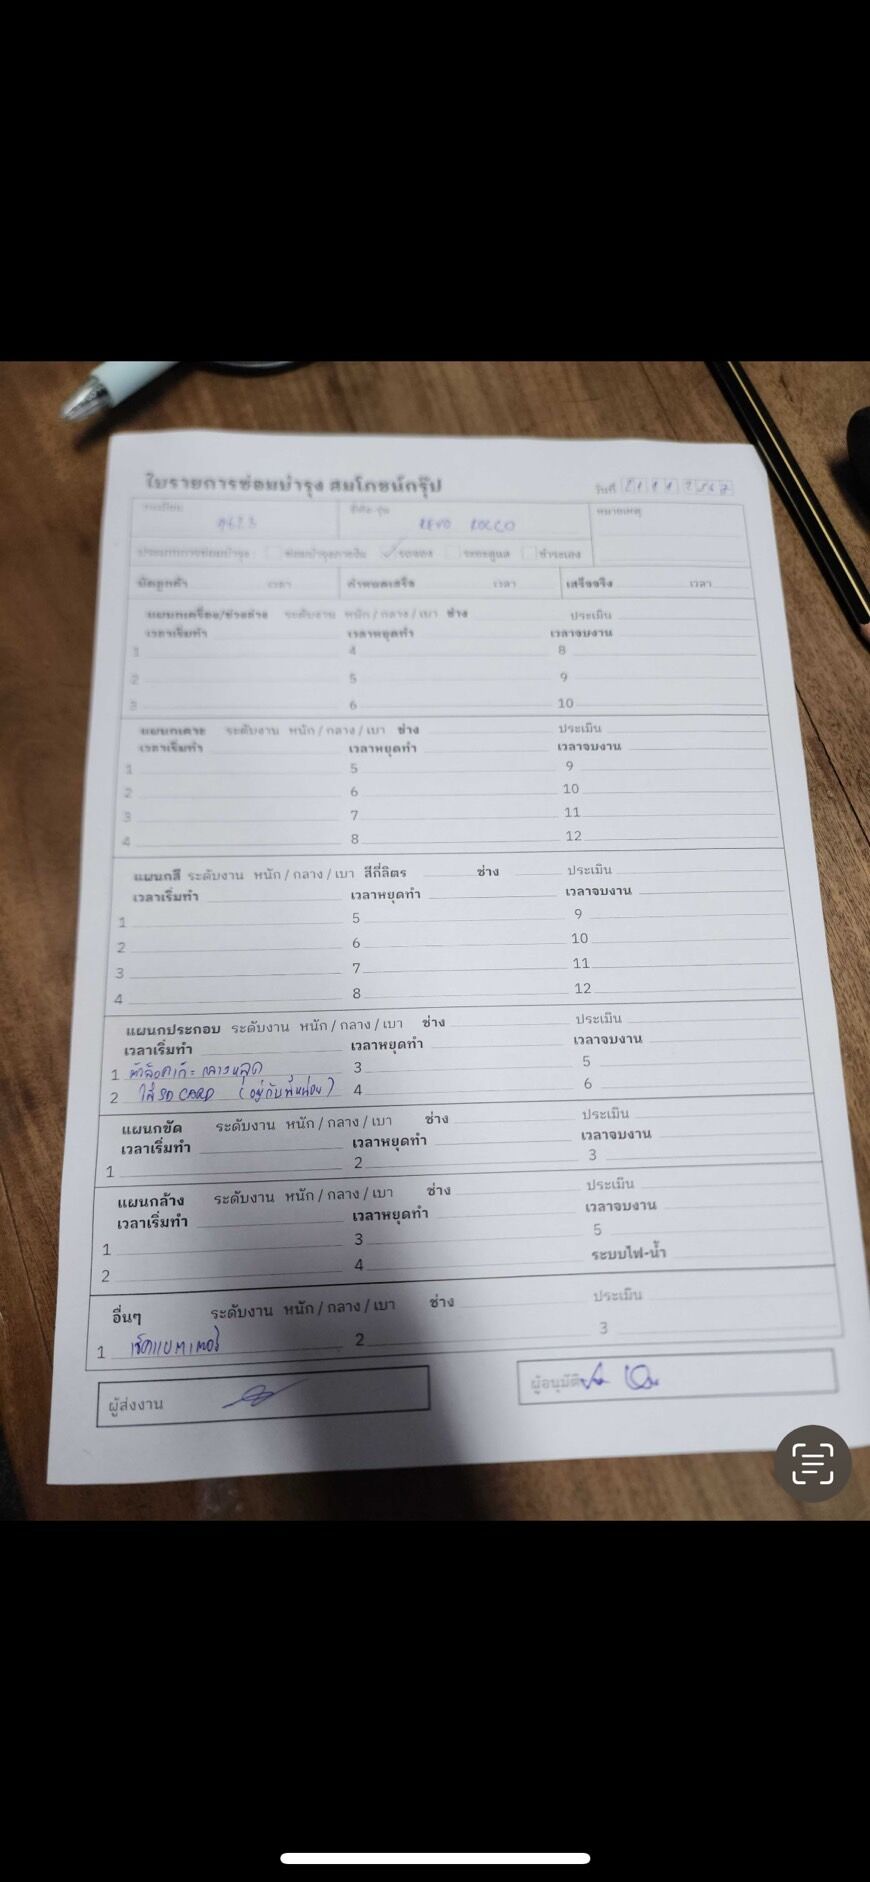 ใบรายการซ่อมบำรุง สมโภชน์กรุ๊ป วันที่
ทะเบียน ยี่ห้อ-รุ่น REVO ROCCO หมายเหตุ
ประเภทการซ่อมบำรุง ซ่อมบำรุงภายใน
นัดลูกค้า เวลา กำหนดเสร็จ เวลา เสร็จจริง เวลา
แผนกเครื่อง/ช่วงล่าง ระดับงาน หนัก / กลาง / เบา ช่าง ประเมิน
เวลาเริ่มทำ เวลาหยุดทำ เวลาจบงาน
1 4 8
2 5 9
3 6 10
แผนกเคาะ ระดับงาน หนัก / กลาง / เบา ช่าง ประเมิน
เวลาเริ่มทำ เวลาหยุดทำ เวลาจบงาน
1 5 9
2 6 10
3 7 11
4 8 12
แผนกสี ระดับงาน หนัก / กลาง / เบา สีกี่ลิตร ช่าง ประเมิน
เวลาเริ่มทำ เวลาหยุดทำ เวลาจบงาน
1 5 9
2 6 10
3 7 11
4 8 12
แผนกประกอบ ระดับงาน หนัก / กลาง / เบา ช่าง ประเมิน
เวลาเริ่มทำ เวลาหยุดทำ เวลาจบงาน
1 ตัวล็อคเก๊ะกลางหลุด 3 5
2 ใส่ SD CARD 4 6
แผนกขัด ระดับงาน หนัก / กลาง / เบา ช่าง ประเมิน
เวลาเริ่มทำ เวลาหยุดทำ เวลาจบงาน
1 2 3
แผนกล้าง ระดับงาน หนัก / กลาง / เบา ช่าง ประเมิน
เวลาเริ่มทำ เวลาหยุดทำ เวลาจบงาน
1 3 5
2 4 ระบบไฟ-น้ำ
อื่นๆ ระดับงาน หนัก / กลาง / เบา ช่าง ประเมิน
1 เช็คแบตเตอรี่ 2 3
ผู้ส่งงาน ผู้อนุมัติ